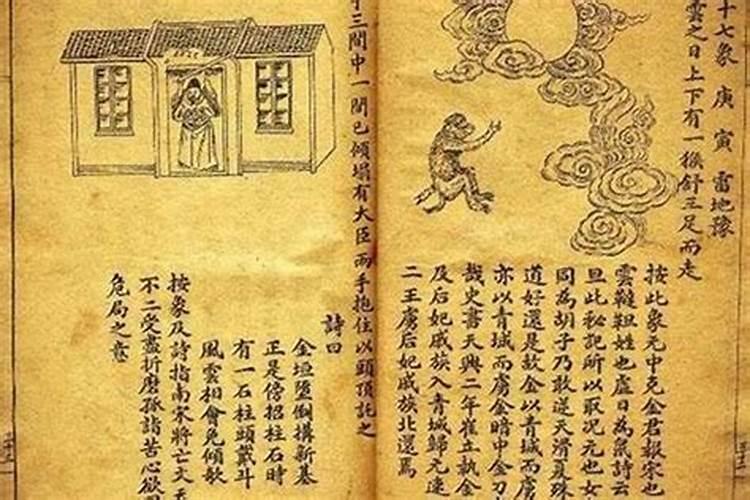 十七象 庚寅 雷地豫
雲之日上下有一猴舒三足而走
按此象元中克金君報宋也
雲韃靼姓也虛日為鼠詩云
旦此秘記所以取況元也女
同為胡子乃敢逆天滑夏
道好還是故金以青城而虜
亦以青城而虜金暗中金刀
哉史書天興二年崔立執金
及后妃戚族入青城歸元速
二王虜后妃戚族北還焉
三間中一間已傾塌有大臣兩手抱住以頭頂託之
詩曰
金垣墮倒搆新基
正是傍招柱石時
有一石柱頭戴斗
風雲相會免傾欹
按象及詩指南宋將亡文天
不二受盡折磨孫諸苦心欲
危局之意